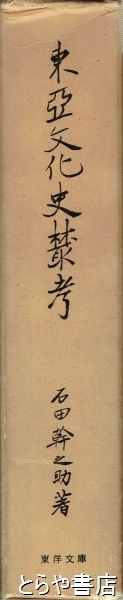 東亞文化史叢考
石田幹之助著
東洋文庫
とらや書店